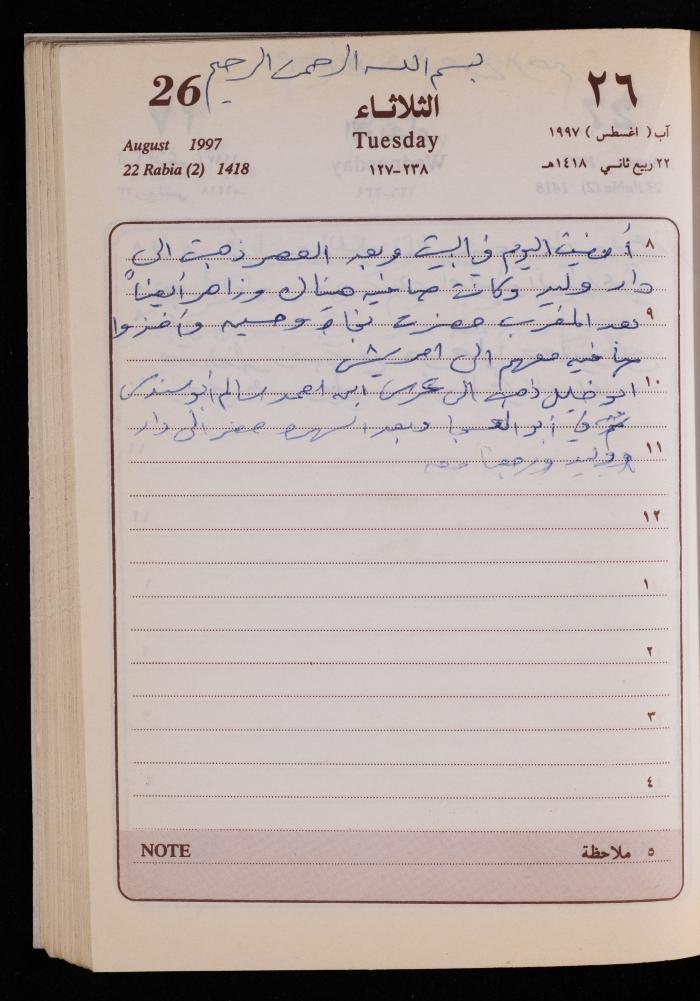 بسم الله الرحمن الرحيم
26
الثلاثاء
٢٦
August 1997
Tuesday
آب ( اغسطس ) ١٩٩٧
22 Rabia (2) 1418
١٢٧-٢٣٨
٢٢ ربيع ثاني ١٤١٨هـ
٨
أمضيت اليوم في البيت وبعد العصر ذهبت الى
دار وليد وكانت صافيه هناك وزاهر أيضاً
٩
بعد المغرب حضرت نجاح وحسيه وأخذوا
صافيه معهم الى
١٠
ابو خليل ذهب الى عرس ابن احمد سالم أبو
في أبو العسجا وبعد السهره حضر الى دار
١١
وليد ورجعنا معه
١٢
١
٢
٣
٤
NOTE
٥ ملاحظة